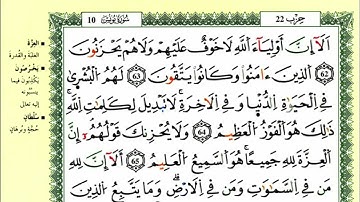 حزب 22
سورة يونس 10
أَلَآ إِنَّ أَوْلِيَآءَ اَللَّهِ لَا خَوْفٌ عَلَيْهِمْ وَلَا هُمْ يَحْزَنُونَ
62 اَلذِينَ ءَامَنُواْ وَكَانُواْ يَتَّقُونَ 63 لَهُمُ اُلْبُشْر۪يٰ
فِے اِلْحَيَوٰةِ اِلدُّنْي۪ا وَفِے اِلَاخِرَةِ لَا تَبْدِيلَ لِكَلِمَٰتِ اِللَّهِ
ذَٰلِكَ هُوَ اَلْفَوْزُ اُلْعَظِيمُ 64 وَلَا يُحْزِنكَ قَوْلُهُمُۥٓ إِنَّ
اَلْعِزَّةَ لِلهِ جَمِيعاً هُوَ اَلسَّمِيعُ اُلْعَلِيمُ 65 أَلَآ إِنَّ لِلهِ
مَن فِے اِلسَّمَٰوَٰتِ وَمَن فِے اِلَارْضِ وَمَا يَتَّبِعُ اُلذِينَ
العِزَّة
الغلبة والقدرة
يَخْرُصُون
يكذبون فيما
ينسبونه
إليه تعالى
سُلْطَان
حجة وبرهان